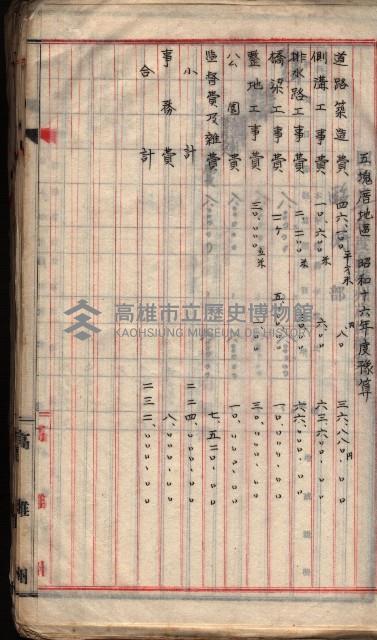 五塊厝地區 昭和十六年度豫算
道路築造費 四六、一〇〇平方米 八〇 三六、八八〇円〇〇
側溝工事費 一〇、六〇〇米 六、〇〇 六三、六〇〇、〇〇
排水路工事費 二、二〇〇米 三〇、〇〇 六六、〇〇〇、〇〇
橋梁工事費 二ケ 五、〇〇〇、〇〇 一〇、〇〇〇、〇〇
整地工事費 三〇、〇〇〇立米 三〇、〇〇〇、〇〇
公園費 一〇、〇〇〇、〇〇
監督費及雜費 七、五二〇、〇〇
小計 二二四、〇〇〇、〇〇
事務費 八、〇〇〇、〇〇
合計 二三二、〇〇〇、〇〇
高雄州
高雄市立歷史博物館
KAOHSIUNG MUSEUM OF HISTORY